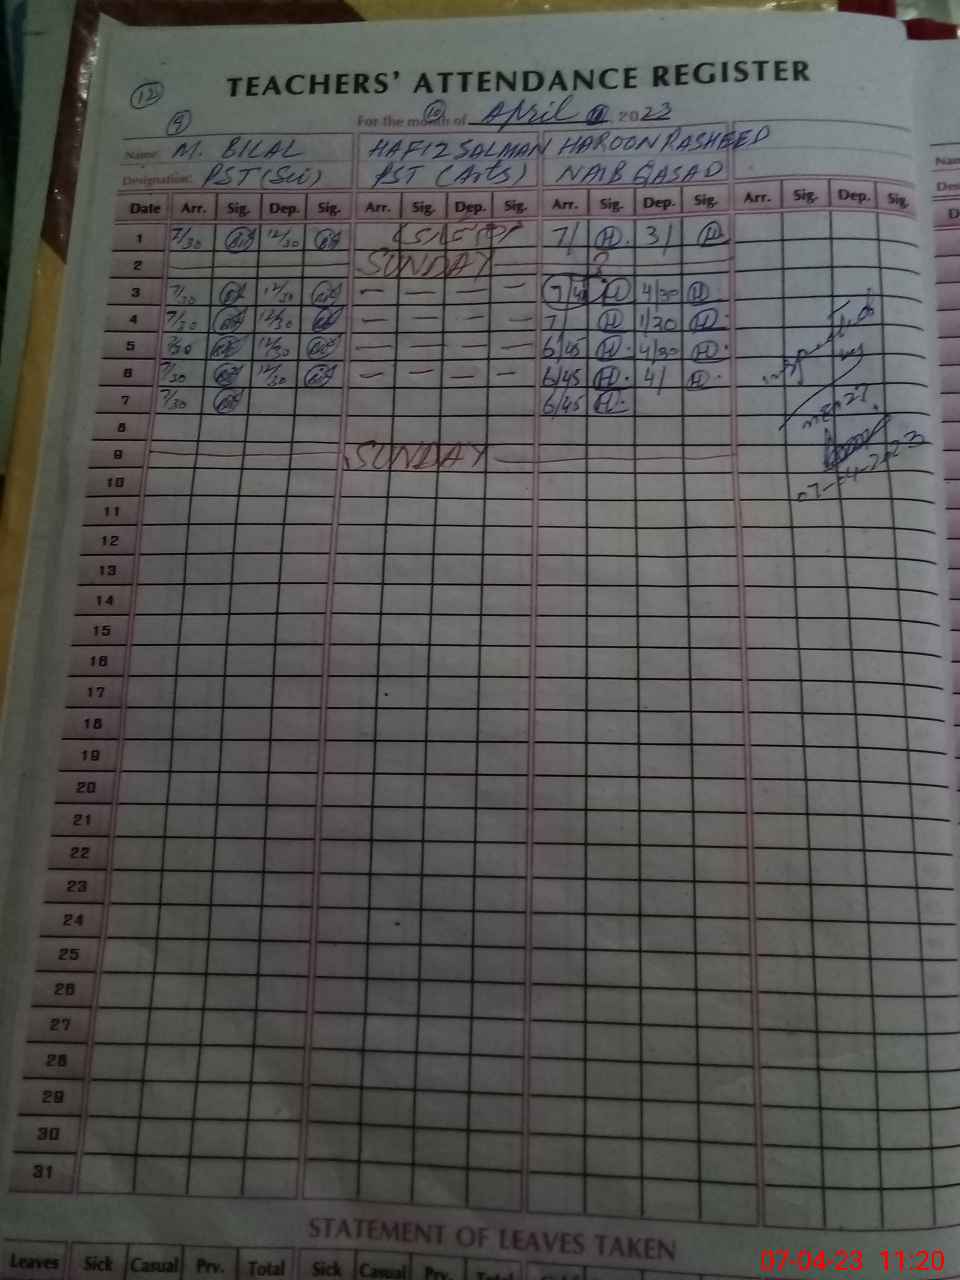 TEACHERS' ATTENDANCE REGISTER
12
9
For the month of April 2023
10
Name: M. BILAL HAFIZ SALMAN HAROON RASHEED
Designation: PST (Sci) PST (Arts) NAIB QASAD
Date Arr. Sig. Dep. Sig. Arr. Sig. Dep. Sig. Arr. Sig. Dep. Sig. Arr. Sig. Dep. Sig.
1 7/30 12/30 7/ H. 3/ H
2 SUNDAY
3 7/30 12/30 — — — — 7/45 H 4/30 H
4 7/30 12/30 — — — — 7/ H 1/30 H.
5 7/30 12/30 — — — — 6/45 H. 4/30 H.
6 7/30 12/30 — — — — 6/45 H. 4/ H.
7 7/30 6/45 H.
8
9 SUNDAY
07-04-2023
10
11
12
13
14
15
16
17
18
19
20
21
22
23
24
25
26
27
28
29
30
31
STATEMENT OF LEAVES TAKEN
Leaves Sick Casual Prv. Total Sick Casual Prv. Total
07-04-23 11:20